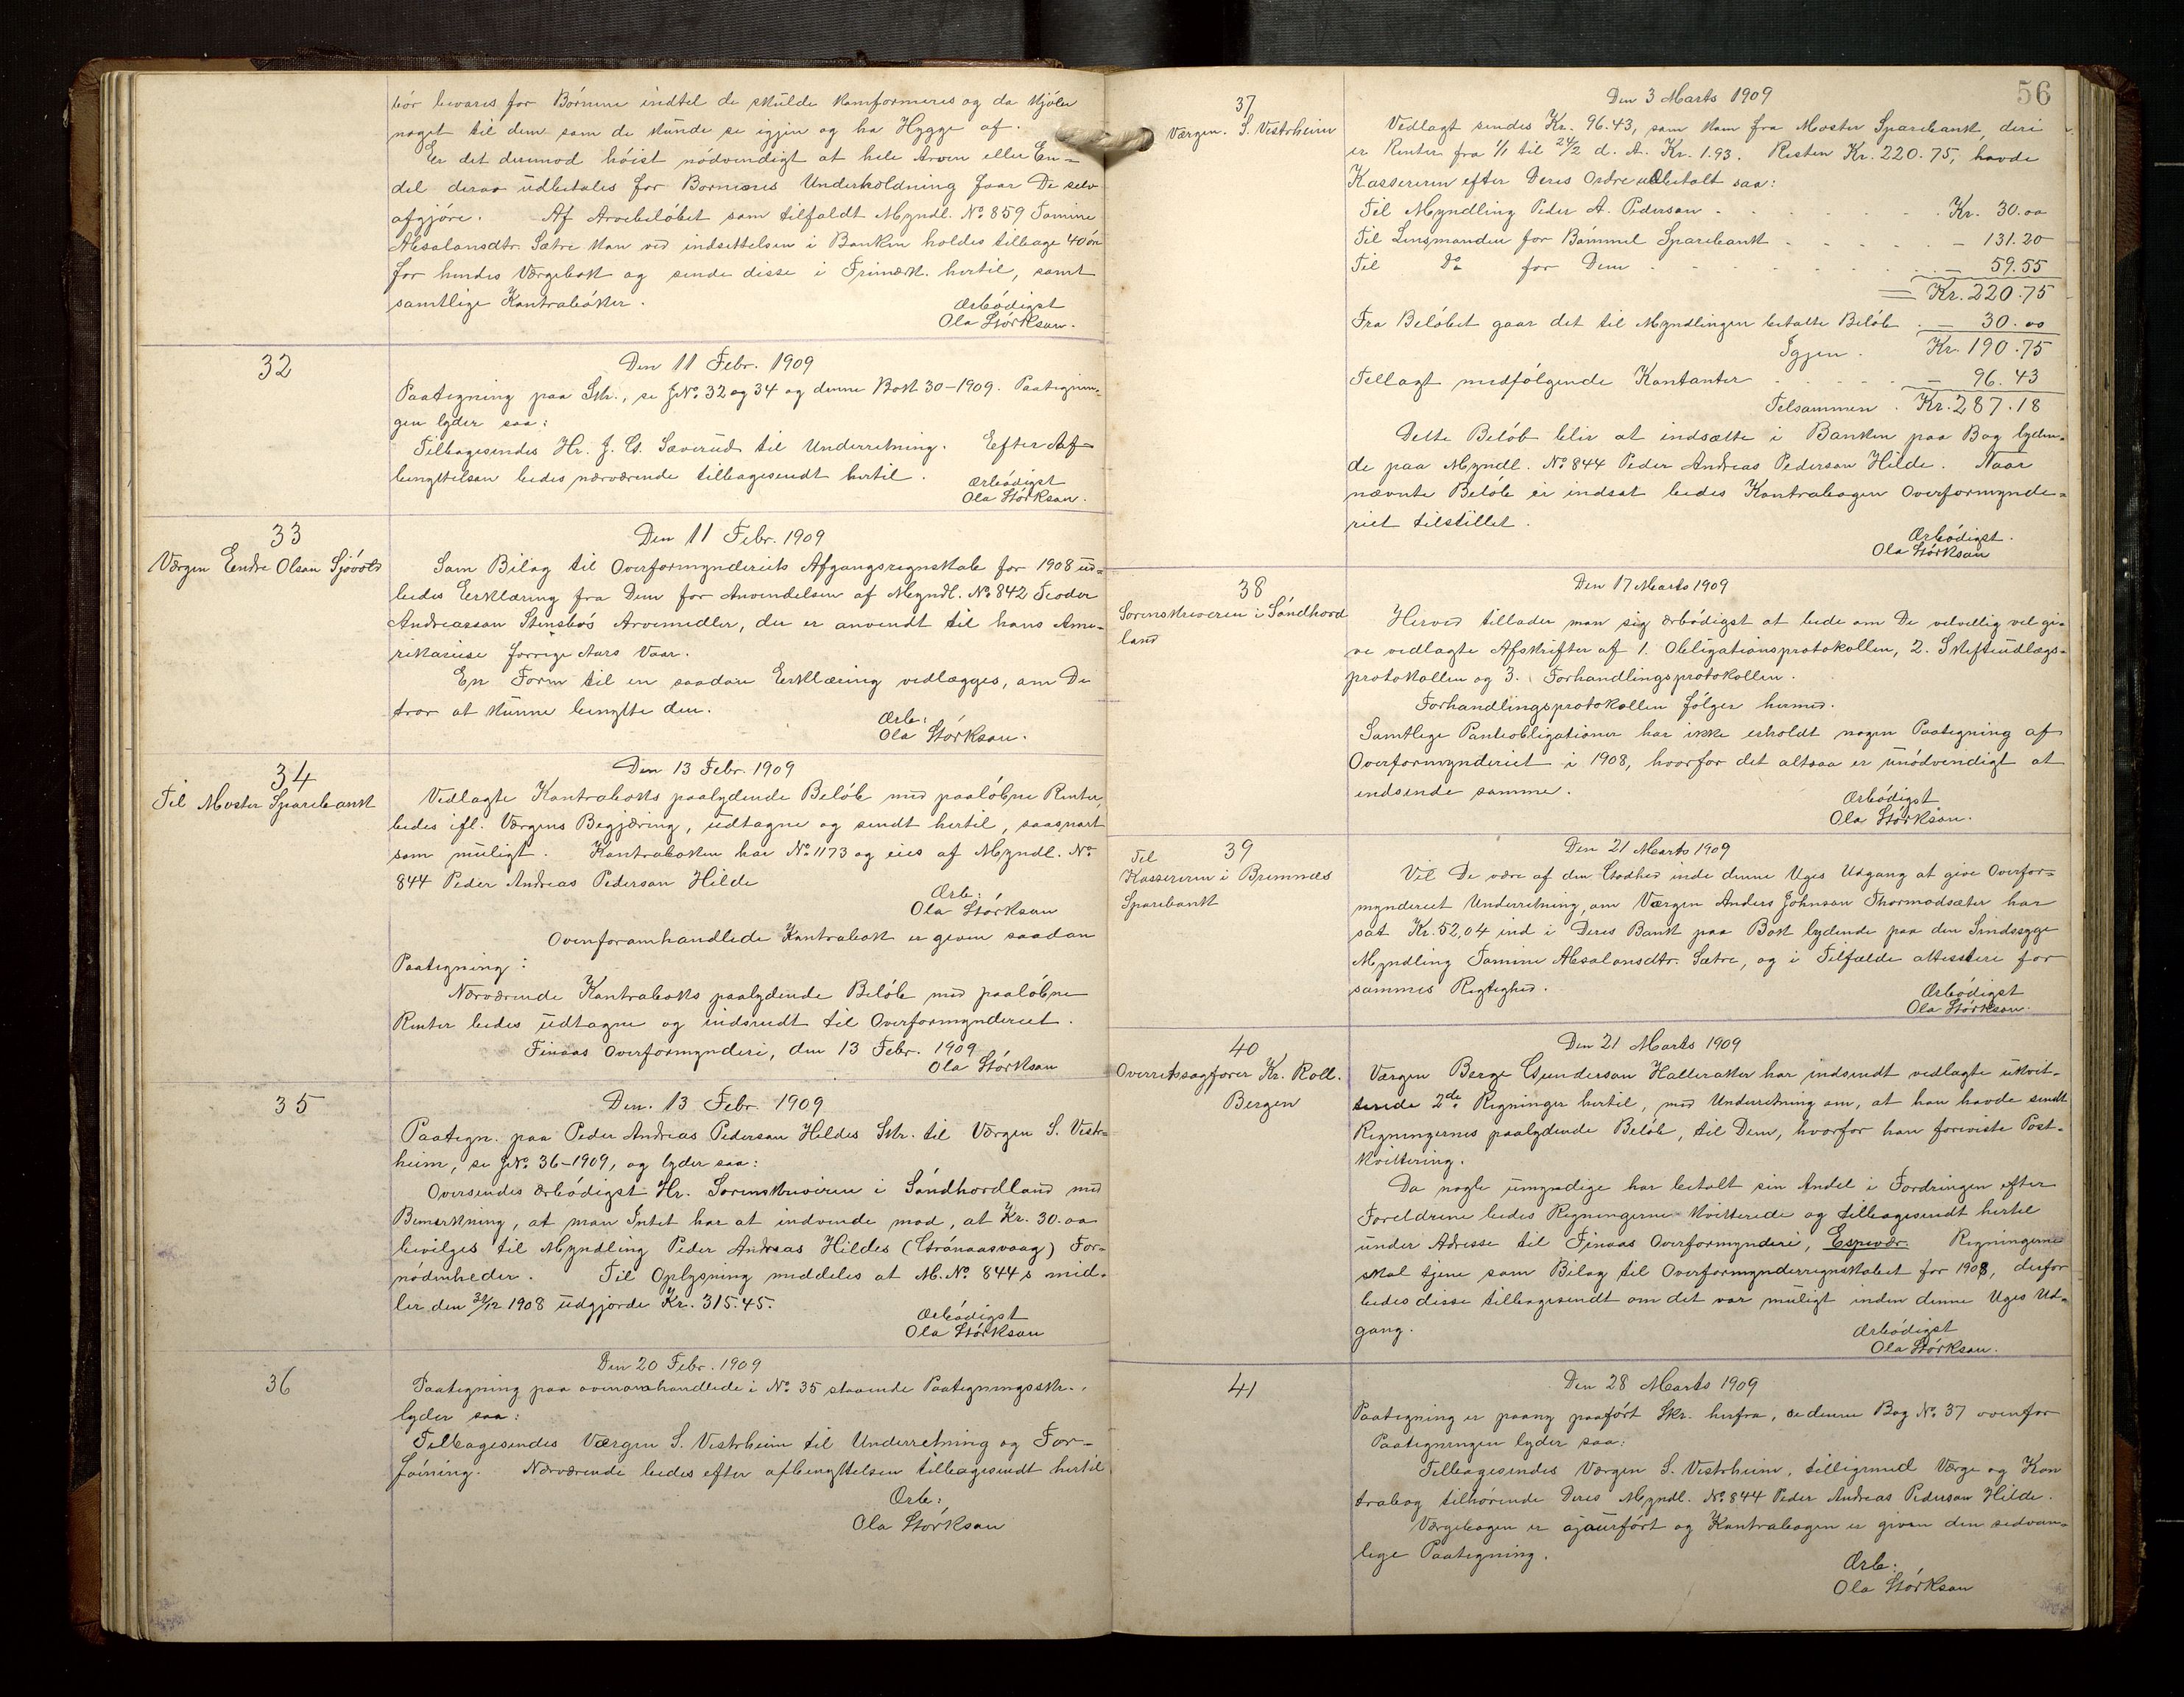 bör bevares for Börnene indtil de skulde konformeres og da kjöbe
noget til dem som de kunde se igjen og ha Hygge af.
Er det derimod höist nödvendigt at hele Arven eller En-
del deraa udbetales for Bornenes Underholdning faar De selv
afgjöre. Af Arvebelöbet som tilfaldt Myndl. No 859 Tomine
Absalonsdtr. Sætre kan ved indsettelsen i Banken holdes tilbage 40 öre
for hendes Værgebok og sende disse i Frimærk. hertil, samt
samtlige Kontraböker.
Ærbödigst
Ola Störkson.
32
Den 11 Febr. 1909
Paategning paa Skr., se J.No. 32 og 34 og denne Bok 30-1909. Paategnin-
gen lyder saa:
Tilbagesendes Hr. J. G. Sæverud til Underretning. Efter Af-
benyttelsen bedes nærværende tilbagesendt hertil.
Ærbödigst
Ola Störkson.
33
Værgen Endre Olson Sjövold
Den 11 Febr. 1909
Som Bilag til Overformynderiets Afgangsregnskab for 1908 ud-
bedes Eerklæring fra Dem for Anvendelsen af Myndl. No. 842 Teodor
Andreasson Stensbös Arvemidler, der er anvendt til hans Ame-
rikareise forrige Aars Vaar.
En Form til en saadan Eerklæring vedlægges, om De
tror at kunne benytte den.
Ærb:
Ola Störkson.
34
Til Moster Sparebank
Den 13 Febr. 1909
Vedlagte Kontraboks paalydende Belöb med paalöbne Renter,
bedes ifl. Værgens Begjæring, udtagne og sendt hertil, saasnart
som muligt. Kontraboken har No. 1173 og eies af Myndl. No.
844 Peder Andreas Pederson Hilde
Ærb:
Ola Störkson
Ovenforomhandlede Kontrabok er given saadan
Paategning:
Nærværende Kontraboks paalydende Belöb med paalöbne
Renter bedes udtagne og indsendt til Overformynderiet.
Finaas Overformynderi, den 13 Febr. 1909
Ola Störkson
35
Den. 13 Febr. 1909
Paategn. paa Peder Andreas Pederson Hildes Skr. til Værgen S. Vestr-
heim, se J.No. 36-1909, og lyder saa:
Oversendes ærbödigst Hr. Sorenskriveren i Söndhordland med
Bemerkning, at man Intet har at indvende mod, at Kr. 30.00
bevilges til Myndling Peder Andreas Hildes (Grönaasvaag) For-
nödenheder. Til Oplysning meddeles at M. No. 844's mid-
ler den 31/12 1908 udgjorde Kr. 315.45.
Ærbödigst
Ola Störkson
36
Den 20 Febr. 1909
Paategning paa ovenomhandlede i No. 35 staaende Paategningsskr.,
lyder saa:
Tilbagesendes Værgen S. Vestrheim til Underretning og For-
föining. Nærværende bedes efter afbenyttelsen tilbagesendt hertil
Ærb:
Ola Störkson
56
37
Værgen. S. Vestrheim
Den 3 Marts 1909
Vedlagt sendes Kr. 96.43, som kom fra Moster Sparebank, deri
er Renter fra 1/1 til 24/2 d. A. Kr. 1.93. Resten Kr. 220.75, havde
Kassereren efter Deres Ordre udbetalt saa:
Til Myndling Peder A. Pederson . . . . . . . Kr. 30.00
Til Lensmanden for Bömmel Sparebank . . . . — 131.20
Til Do for Dem . . . . . . . — 59.55
= Kr. 220.75
Fra Belöbet gaar det til Myndlingen betalte Belöb . — 30.00
Igjen . Kr. 190.75
Tillagt medfölgende Kontanter . . . . . — 96.43
Tilsammen . Kr. 287.18
Dette Belöb blir at indsætte i Banken paa Bog lyden-
de paa Myndl. No. 844 Peder Andreas Pederson Hilde. Naar
nævnte Belöb er indsat bedes Kontrabogen Overformynde-
riet tilstillet.
Ærbödigst.
Ola Störkson
38
Sorenskriveren i Söndhord
land
Den 17 Marts 1909
Herved tillader man sig ærbödigst at bede om De velvillig vil gi-
ve vedlagte Afskrifter af 1. Obligationsprotokollen, 2. Skifteudlægs-
protokollen og 3. Forhandlingsprotokollen.
Forhandlingsprotokollen fölger hermed.
Samtlige Panteobligationer har ikke erholdt nogen Paategning af
Overformynderiet i 1908, hvorfor det altsaa er unödvendigt at
indsende samme.
Ærbödigst
Ola Störkson.
39
Til
Kassereren i Bremnæs
Sparebank
Den 21 Marts 1909
Vil De være af den Godhed inde denne Uges Udgang at give Overfor-
mynderiet Underretning, om Værgen Anders Johnson Thormodsæter har
sat Kr. 52,04 ind i Deres Bank paa Bok lydende paa den Sindssyge
Myndling Tomine Absalonsdtr. Sætre, og i Tilfælde attestere for
sammes Rigtighed.
Ærbödigst
Ola Störkson.
40
Overretssagförer Kr. Roll.
Bergen
Den 21 Marts 1909
Værgen Berge Gunderson Halleraker har indsendt vedlagte ukvit-
terede 2de Regninger hertil, med Underretning om, at han havde sendt
Regningernes paalydende Belöb, til Dem, hvorfor han foreviste Post-
kvittering.
Da nogle umyndige har betalt sin Andel i Fordringen efter
Foreldrene bedes Regningerne kvitterede og tilbagesendt hertil
under Adresse til Finaas Overformynderi, Espevær. Regningerne
skal tjene som Bilag til Overformynderregnskabet for 1908, derfor
bedes disse tilbagesendt om det var muligt inden denne Uges Ud-
gang.
Ærbödigst
Ola Störkson.
41
Den 28 Marts 1909
Paategning er paany paafört Skr. herfra, se denne Bog No. 37 ovenfor
Paategningen lyder saa:
Tilbagesendes Værgen S. Vestrheim, tilligemed Værge og Kon
trabog tilhörende Deres Myndl. No. 844 Peder Andreas Pederson Hilde.
Værgebogen er ajourfört og Kontrabogen er given den sedvan-
lige Paategning.
Ærb:
Ola Störkson